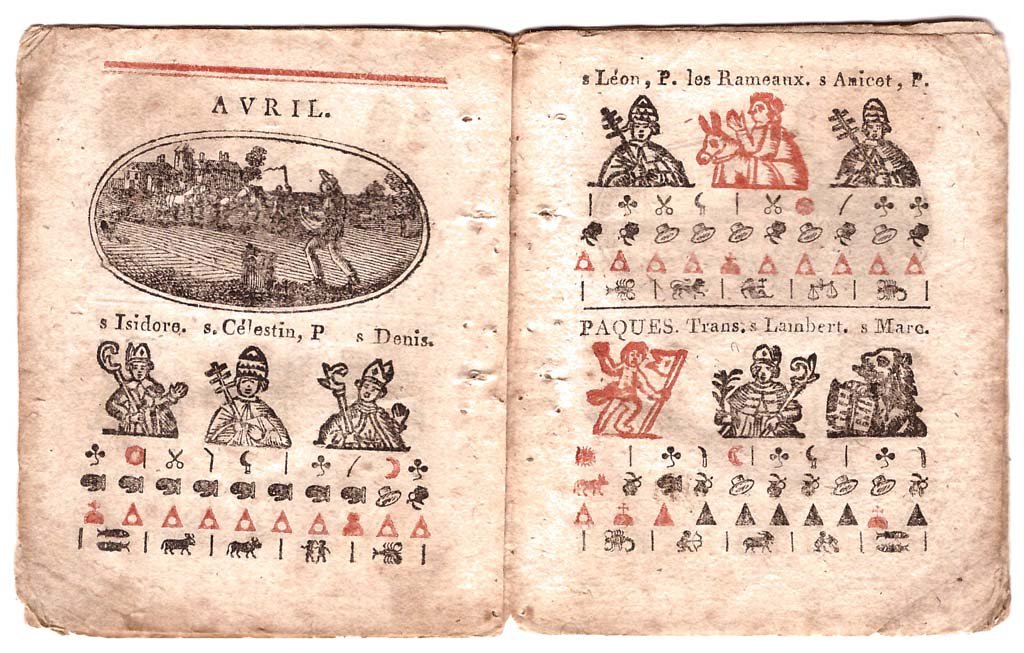 AVRIL.
s Isidore. s. Célestin, P s Denis.
s Léon, P. les Rameaux. s Anicet, P.
PAQUES. Trans. s Lambert. s Marc.